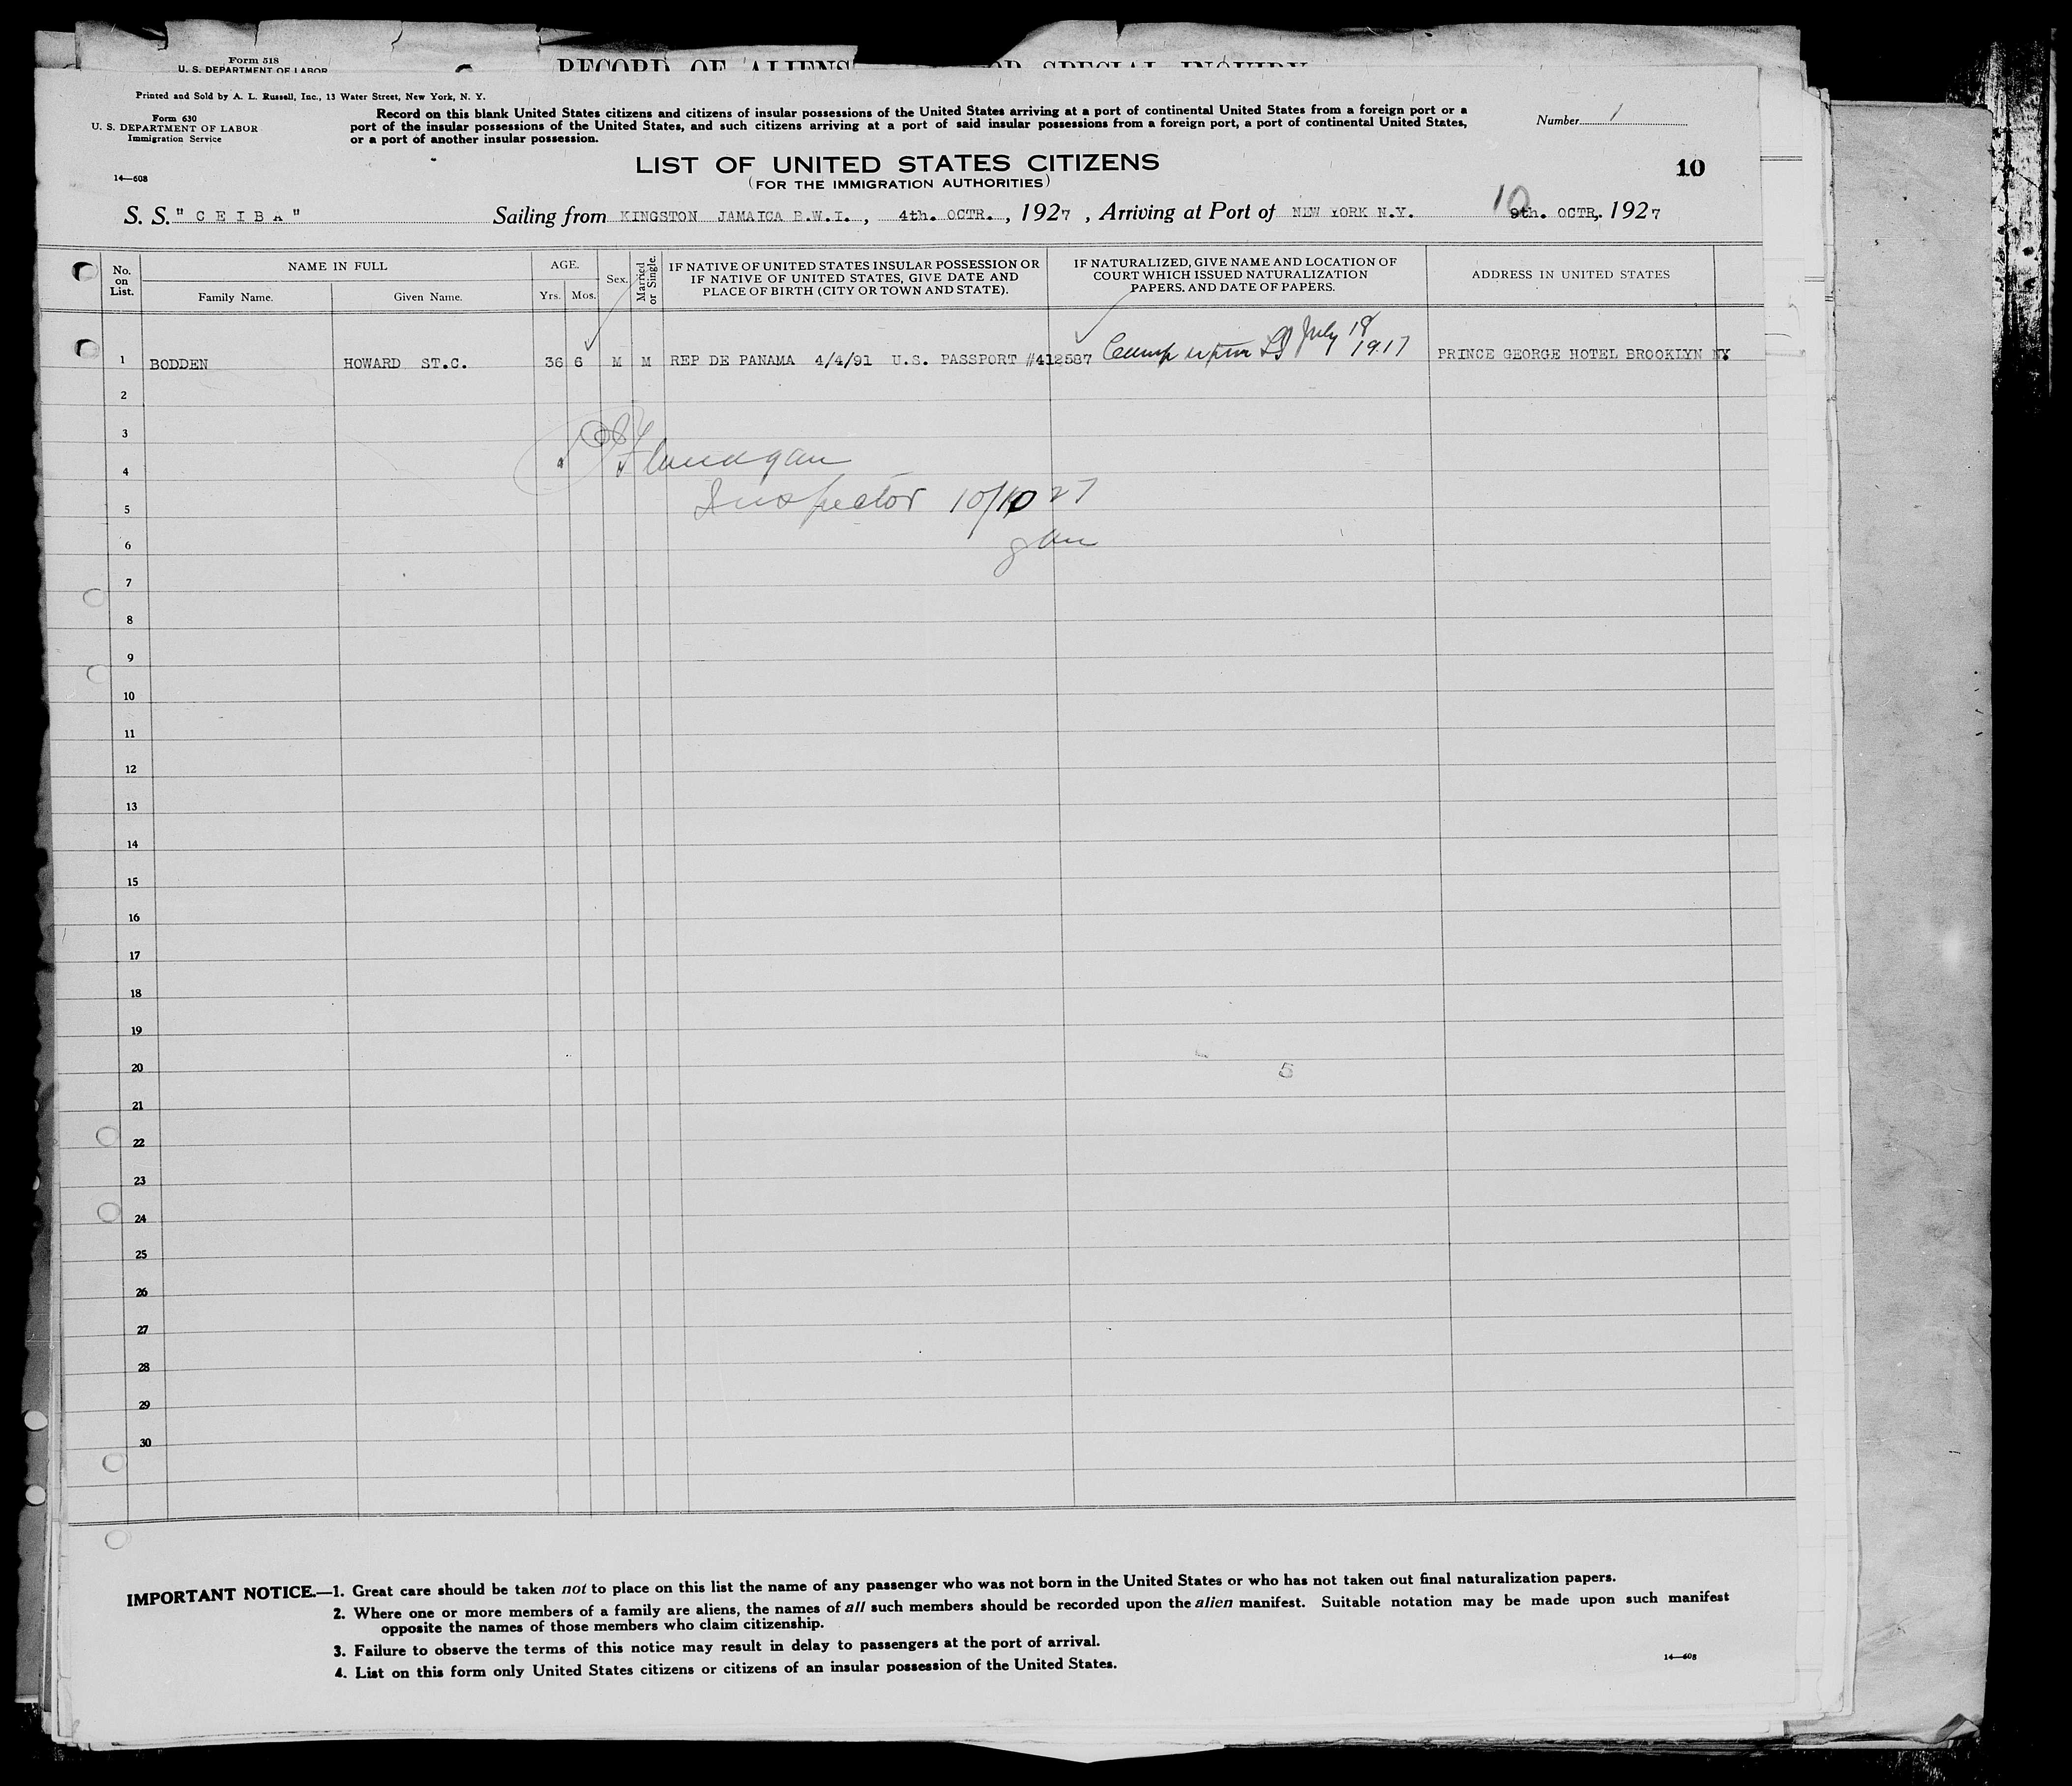 Form 518
U. S. DEPARTMENT OF LABOR
RECORD OF ALIENS OR SPECIAL INQUIRY
Printed and Sold by A. L. Russell, Inc., 13 Water Street, New York, N. Y.
Form 630
U. S. DEPARTMENT OF LABOR
Immigration Service
Record on this blank United States citizens and citizens of insular possessions of the United States arriving at a port of continental United States from a foreign port or a
port of the insular possessions of the United States, and such citizens arriving at a port of said insular possessions from a foreign port, a port of continental United States,
or a port of another insular possession.
Number 1
14—608
LIST OF UNITED STATES CITIZENS
(FOR THE IMMIGRATION AUTHORITIES)
10
S. S. "CEIBA" Sailing from KINGSTON JAMAICA B.W.I., 4th. OCTR., 1927, Arriving at Port of NEW YORK N.Y. 10 9th. OCTR, 1927
No. on List. NAME IN FULL Family Name. Given Name. AGE. Yrs. Mos. Sex. Married or Single. IF NATIVE OF UNITED STATES INSULAR POSSESSION OR IF NATIVE OF UNITED STATES, GIVE DATE AND PLACE OF BIRTH (CITY OR TOWN AND STATE). IF NATURALIZED, GIVE NAME AND LOCATION OF COURT WHICH ISSUED NATURALIZATION PAPERS, AND DATE OF PAPERS. ADDRESS IN UNITED STATES
1 BODDEN HOWARD ST.C. 36 6 M M REP DE PANAMA 4/4/91 U.S. PASSPORT #412587 Camp Upton LI July 18 1917 PRINCE GEORGE HOTEL BROOKLYN NY
2
3
Flanagan
4
Inspector 10/10 27
5
6
7
8
9
10
11
12
13
14
15
16
17
18
19
20
5
21
22
23
24
25
26
27
28
29
30
IMPORTANT NOTICE.—1. Great care should be taken not to place on this list the name of any passenger who was not born in the United States or who has not taken out final naturalization papers.
2. Where one or more members of a family are aliens, the names of all such members should be recorded upon the alien manifest. Suitable notation may be made upon such manifest
opposite the names of those members who claim citizenship.
3. Failure to observe the terms of this notice may result in delay to passengers at the port of arrival.
4. List on this form only United States citizens or citizens of an insular possession of the United States.
14—608